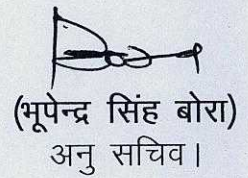 (भूपेन्द्र सिंह बोरा)
अनु सचिव।